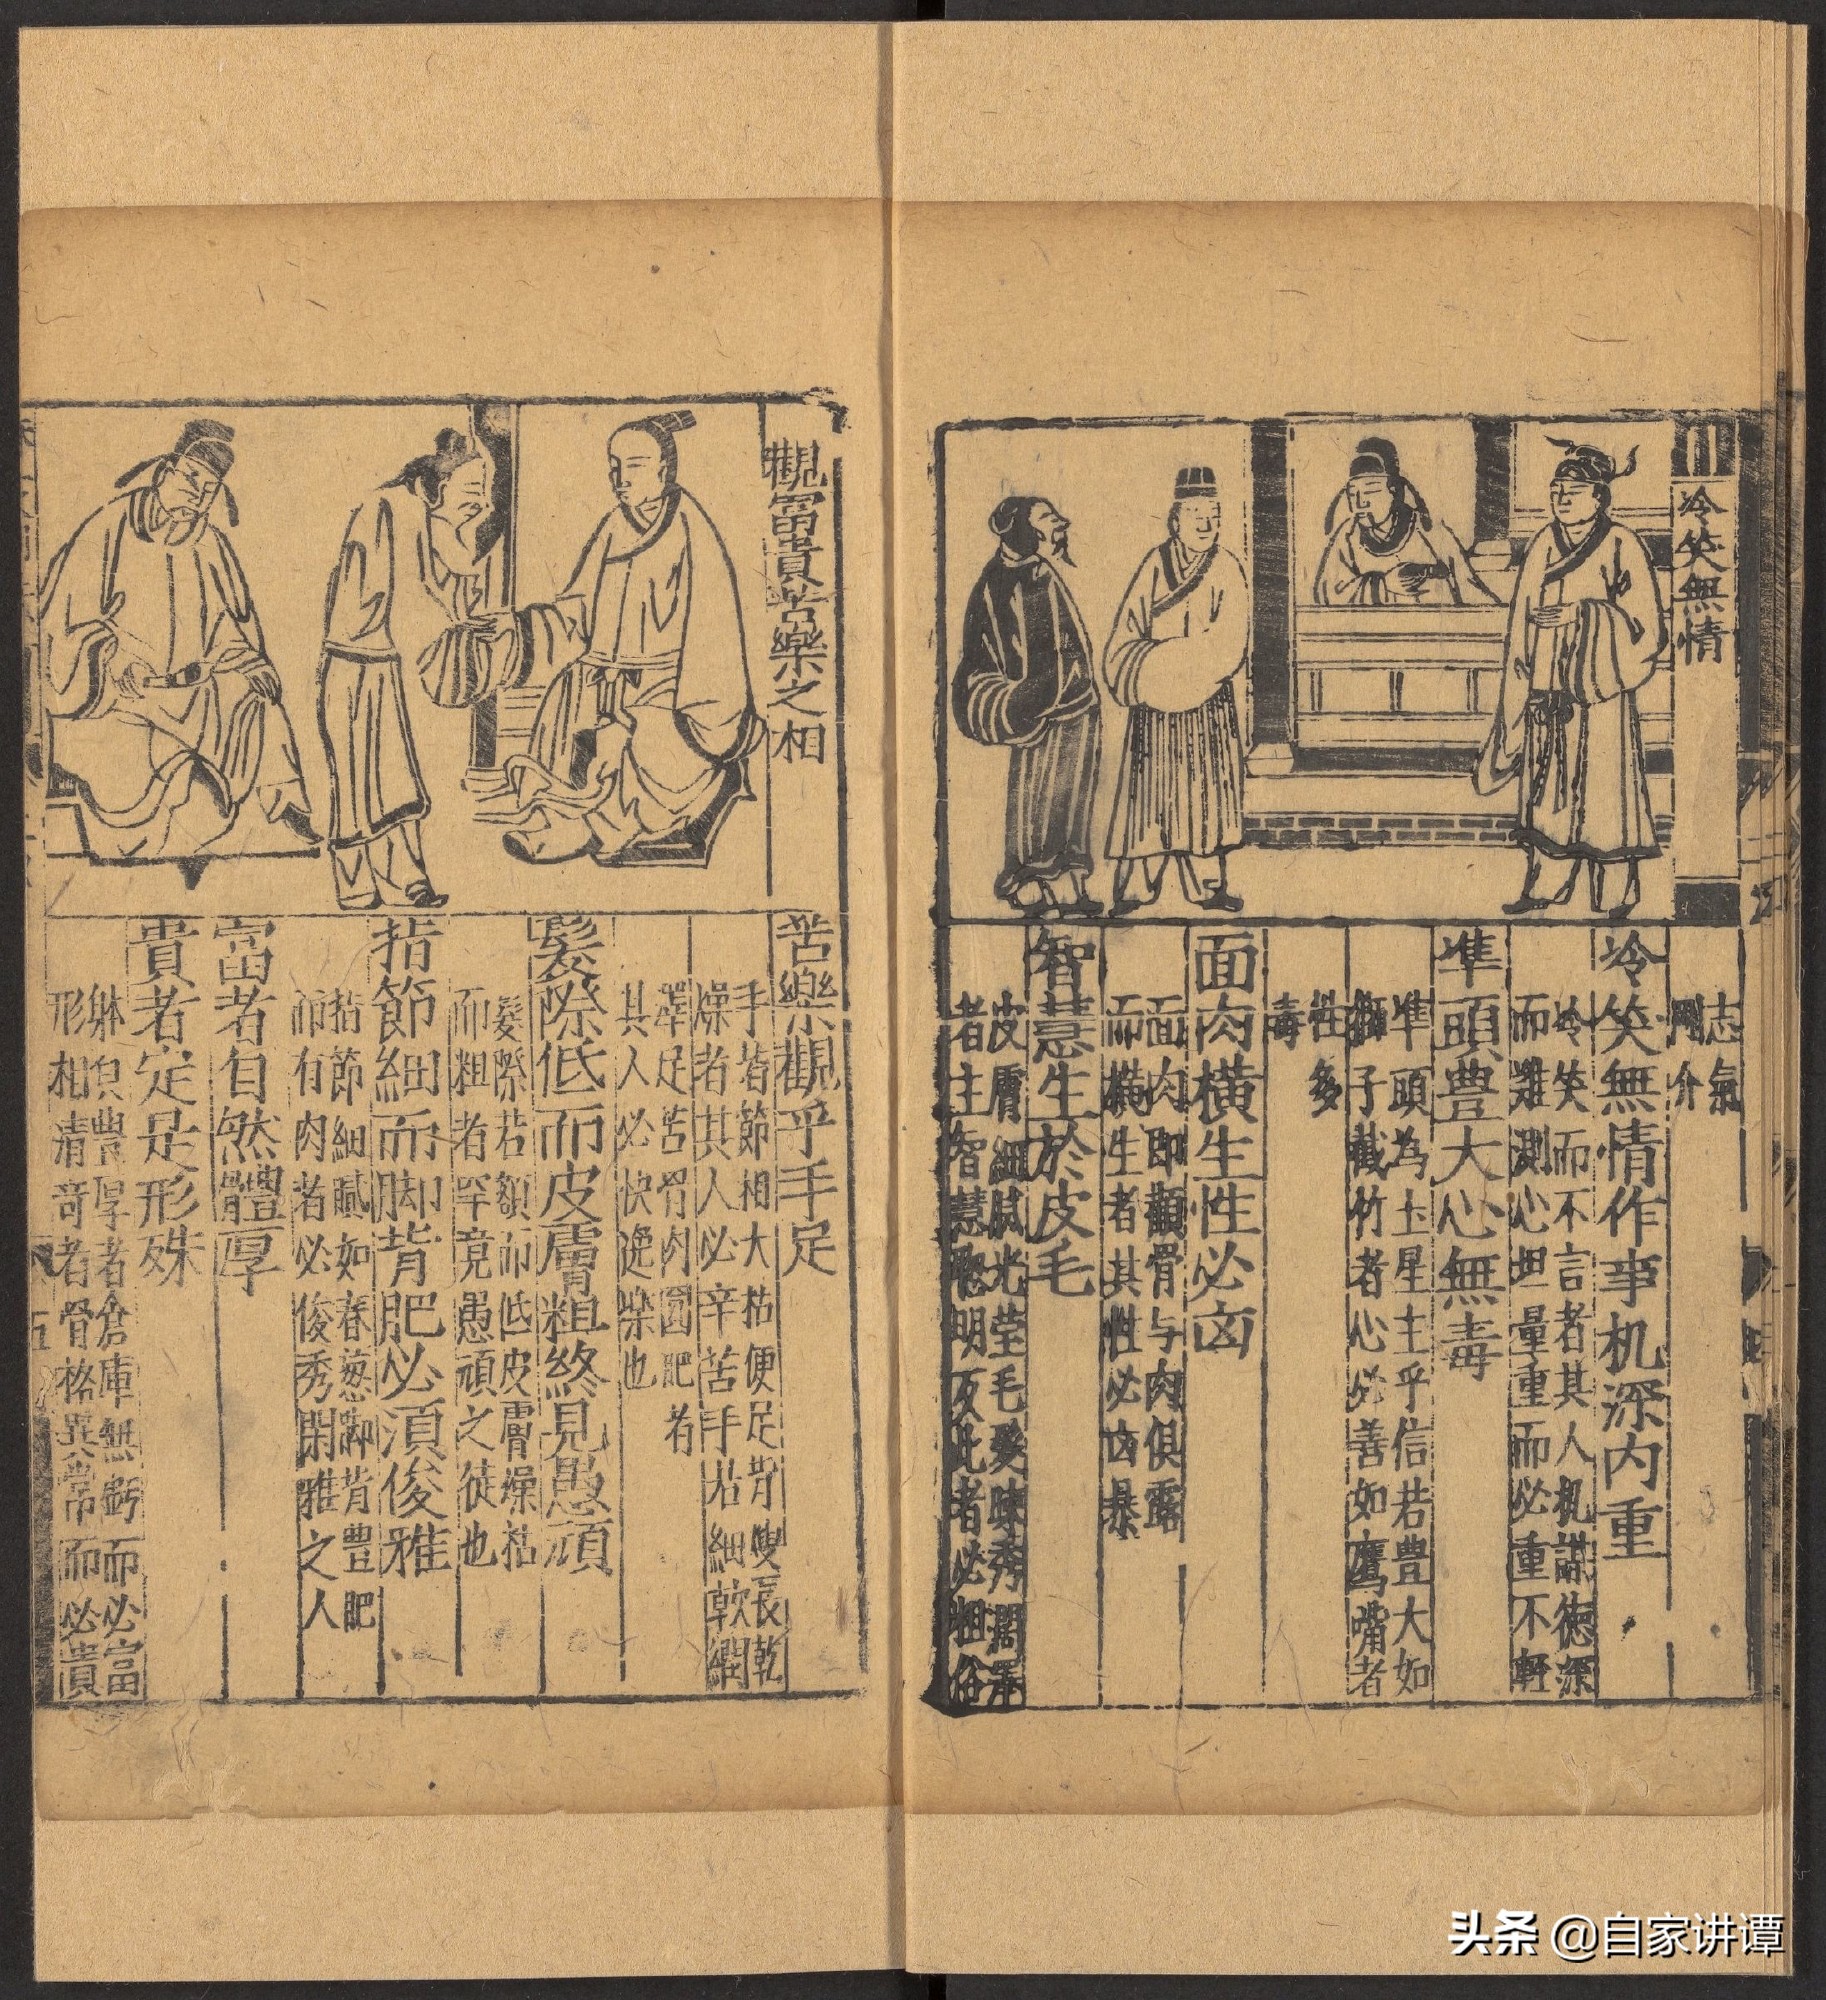 冷笑無情
志氣
剛介
冷笑無情作事机深内重
冷笑而不言者其人机謀德深
而難測心坦量重而必重不輕
準頭豊大心無毒
準頭為土星主乎信若豊大如
獅子截竹者心必善如鷹嘴者
性多
毒
面肉橫生性必㐫
面肉即顴骨与肉俱露
而橫生者其性必㐫暴
智慧生於皮毛
皮膚細膩光莹毛髮疎秀潤澤
者主智慧聰明反此者必粗俗
觀富貴苦樂之相
苦樂觀乎手足
手指節相大枯便足背瘦長乾
燥者其人必辛苦手若細軟潤
澤足苦骨肉圓肥者
其人必快逸樂也
髮際低而皮膚粗終見愚頑
髮際若額而低皮膚燥枯
而粗者罕竟愚頑之徒也
指節細而脚背肥必須俊雅
指節細膩如春葱脚背豊肥
而有肉者必俊秀閑雅之人
富者自然體厚
貴者定是形殊
躰皃豊厚者倉庫無虧而必富
形相清竒者骨格異常而必貴
五
头条 @自家讲谭